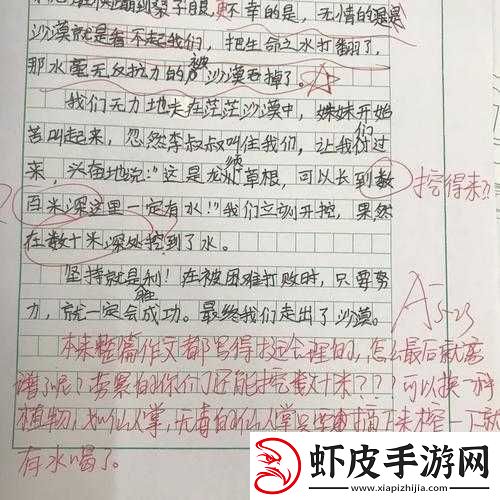 嗓子眼,更不幸的是,无情的
沙漠就是看不起我们,把生命之水打翻了,
那水毫无反抗力的被沙漠吞掉了。
我们无力地走在茫茫沙漠中,妹妹开始
苦叫起来,忽然李叔叔叫住我们,让我们过
来,兴奋地说:“这是草根,可以长到数
百米深这里一定有水!”我们立刻开挖,果然
在数十米深处挖到了水。
挖得来??
坚持就是胜利!在被困难打败时,只要努
力,就一定会成功。最终我们走出了沙漠。
A 5-23
本来整篇作文都写得挺合理的,怎么最后就离
谱了呢?劳累的你们还能挖数十米???可以换一种
植物,如仙人掌,无毒的仙人掌只要摘下来榨一下就
有水喝了。
虾皮手游网
www.xiapizhijia.com